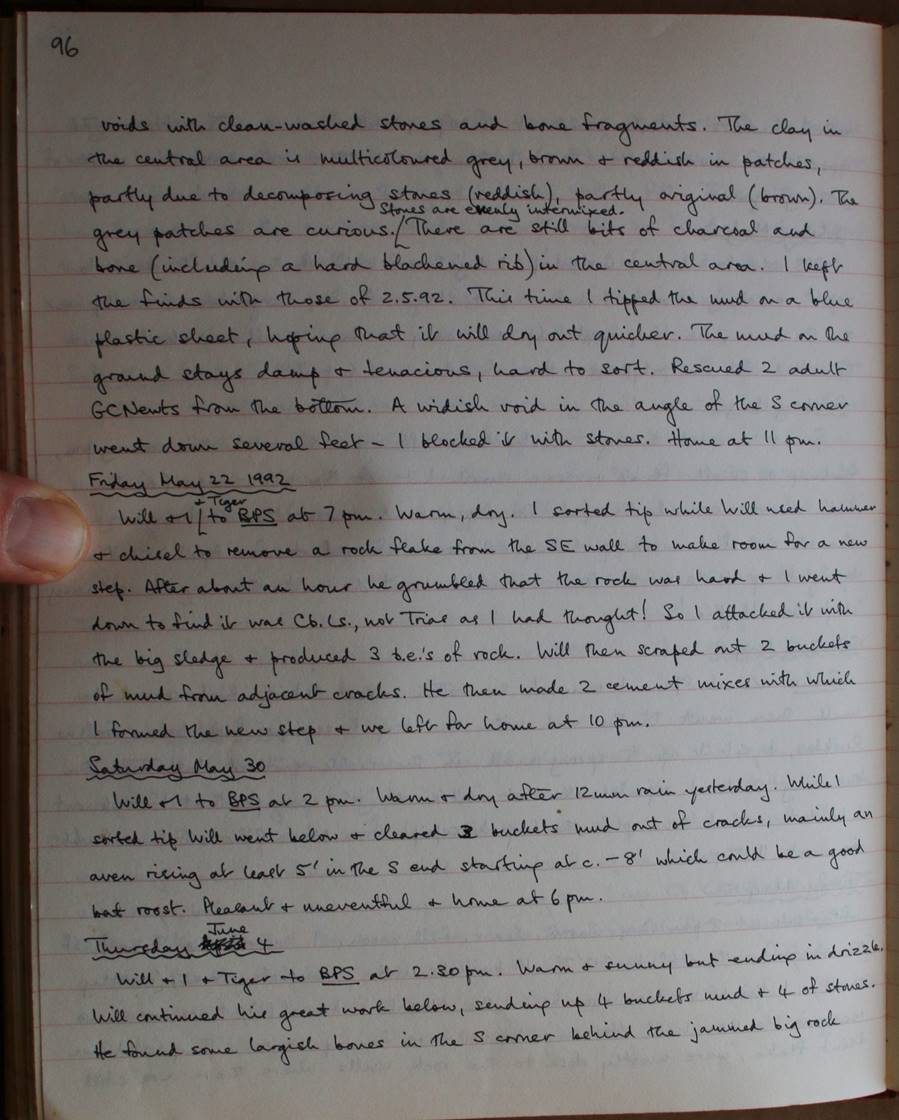 96
voids with clean-washed stones and bone fragments. The clay in
the central area is multicoloured grey, brown + reddish in patches,
partly due to decomposing stones (reddish), partly original (brown). The
Stones are evenly intermixed.
grey patches are curious. There are still bits of charcoal and
bone (including a hard blackened rib) in the central area. I kept
the finds with those of 2.5.92. This time I tipped the mud on a blue
plastic sheet, hoping that it will dry out quicker. The mud on the
ground stays damp + tenacious, hard to sort. Rescued 2 adult
GCNewts from the bottom. A widish void in the angle of the S corner
went down several feet - I blocked it with stones. Home at 11 pm.
Friday May 22 1992
+ Tiger
Will + I to BPS at 7 pm. Warm, dry. I sorted tip while Will used hammer
+ chisel to remove a rock flake from the SE wall to make room for a new
step. After about an hour he grumbled that the rock was hard + I went
down to find it was Cb. Ls., not Trias as I had thought! So I attacked it with
the big sledge + produced 3 b.e.'s of rock. Will then scraped out 2 buckets
of mud from adjacent cracks. He then made 2 cement mixes with which
I formed the new step + we left for home at 10 pm.
Saturday May 30
Will + I to BPS at 2 pm. Warm + dry after 12mm rain yesterday. While I
sorted tip Will went below + cleared 3 buckets mud out of cracks, mainly an
aven rising at least 5' in the S end starting at c. -8' which could be a good
bat roost. Pleasant + uneventful + home at 6 pm.
June
Thursday 4
Will + I + Tiger to BPS at 2.30 pm. Warm + sunny but ending in drizzle.
Will continued his great work below, sending up 4 buckets mud + 4 of stones.
He found some largish bones in the S corner behind the jammed big rock